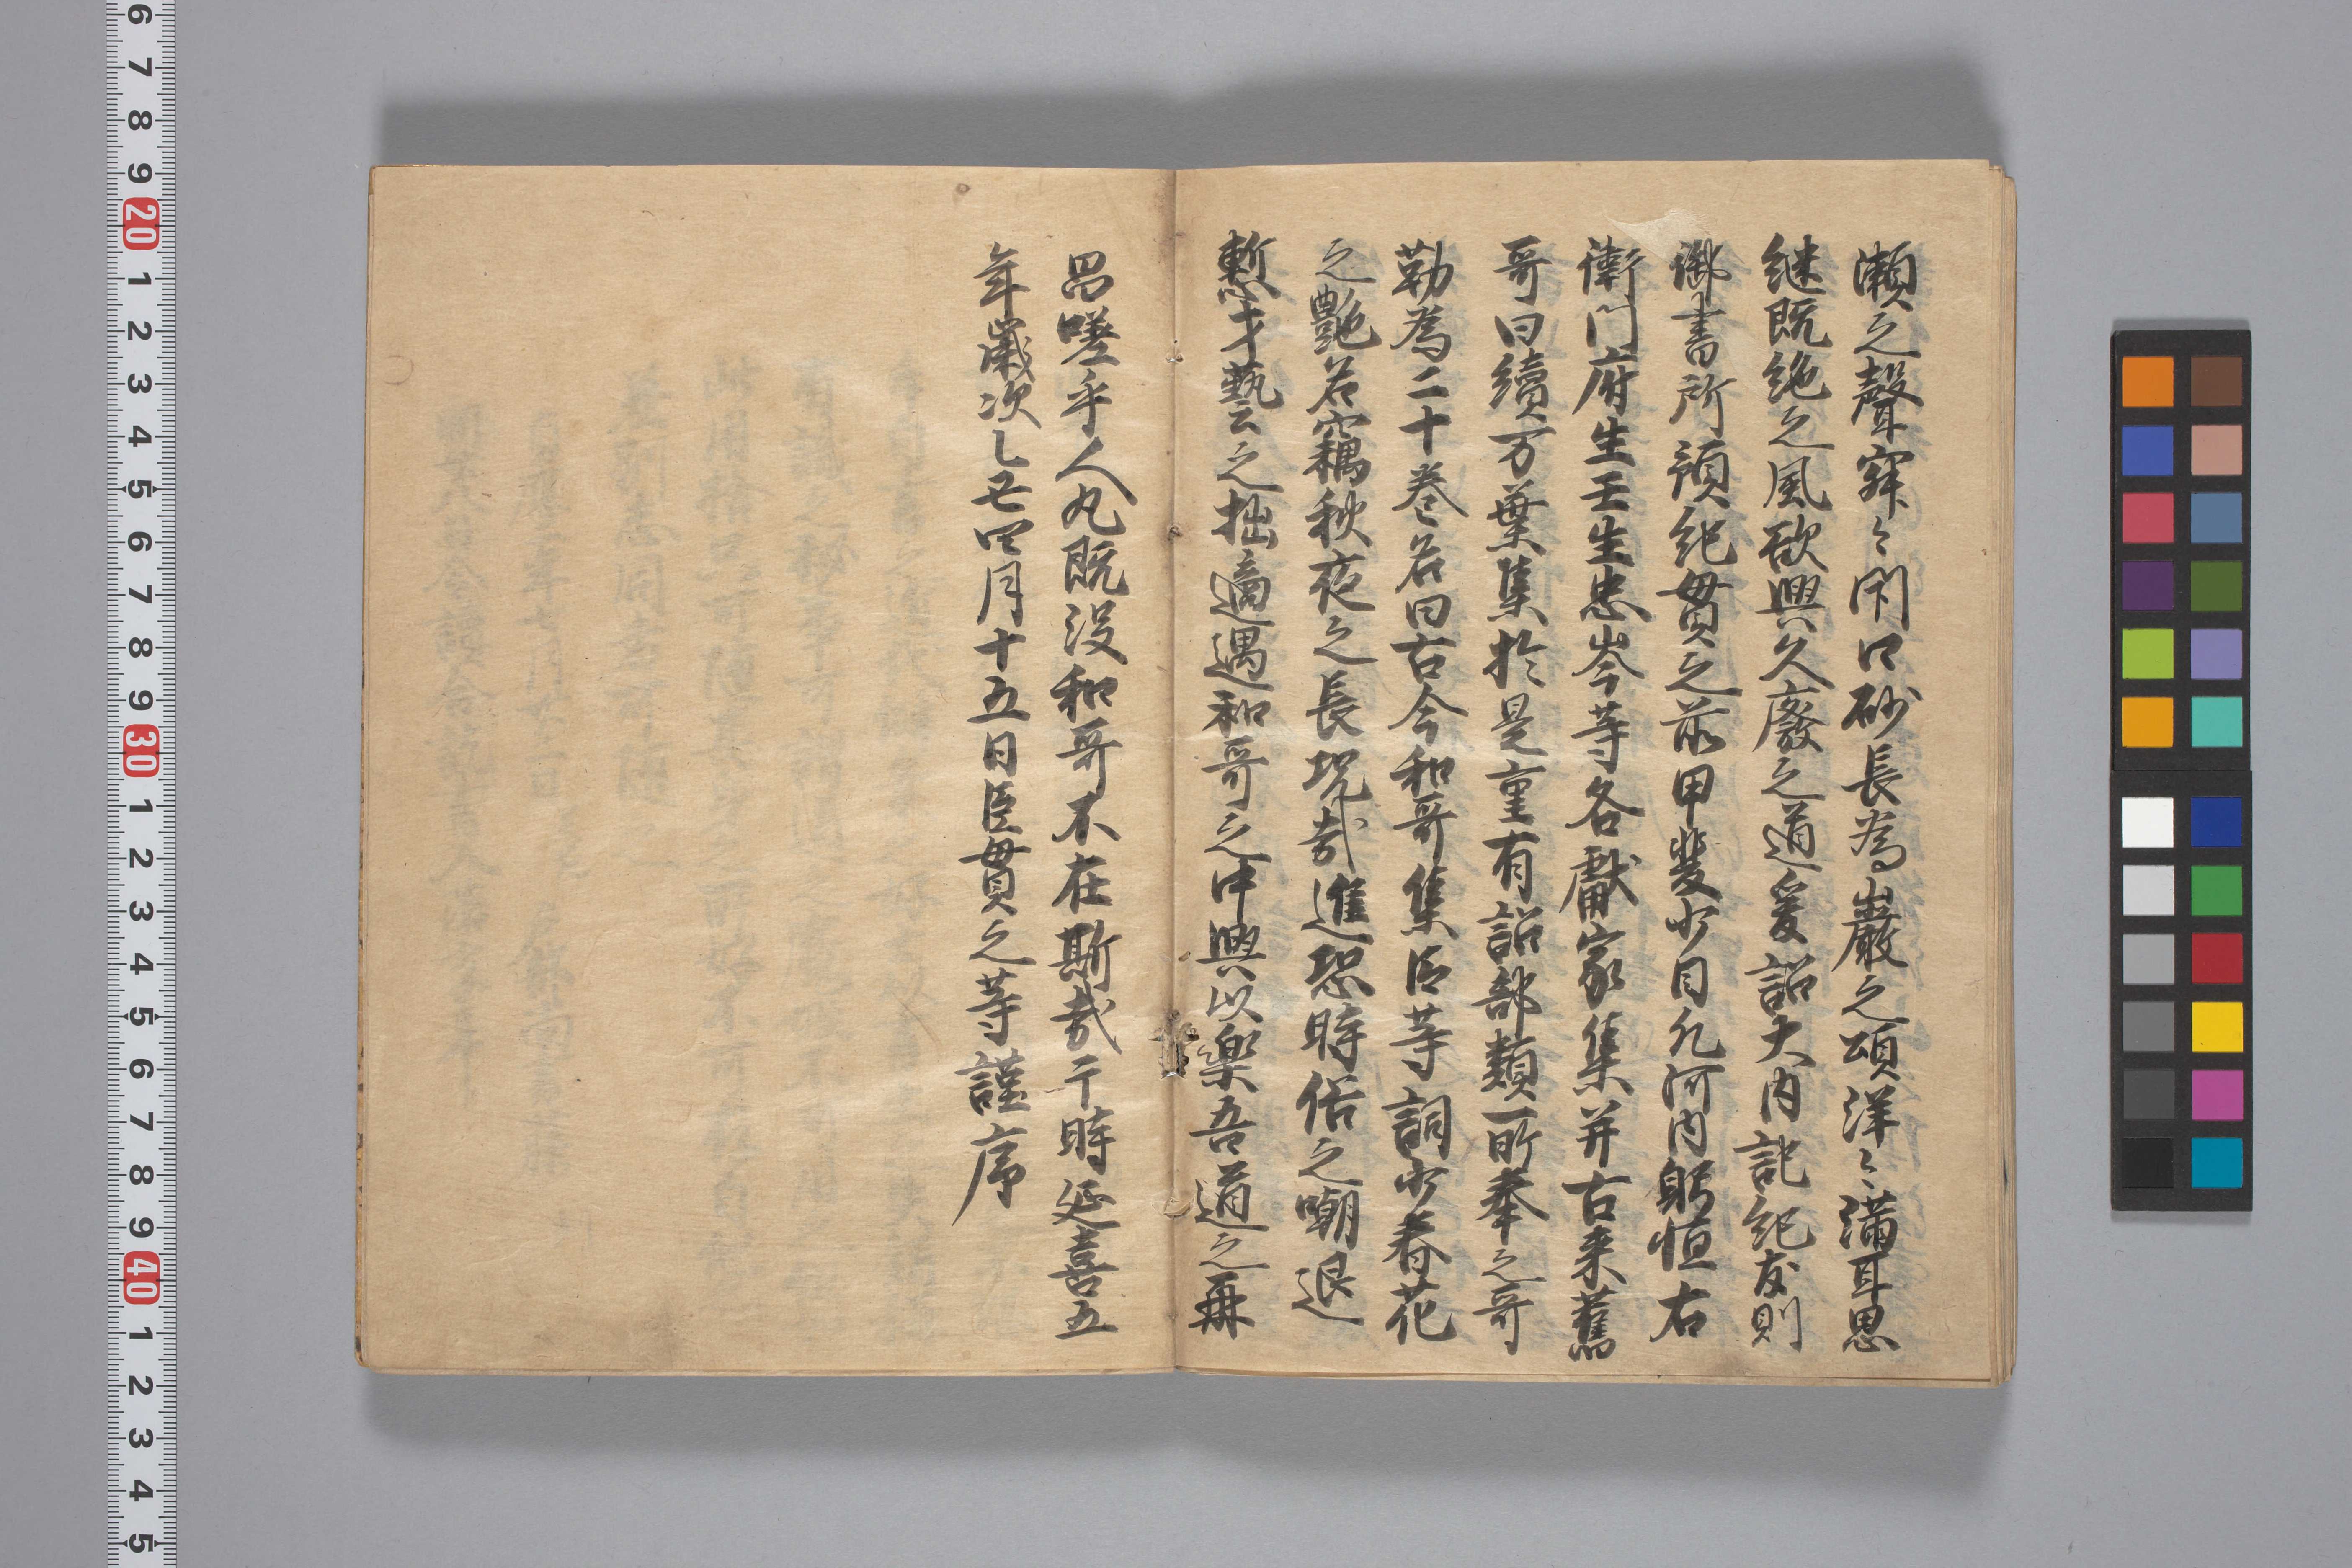 瀬之聲寂々閇口砂長為巖之頌洋々満耳思
継既絶之風欲興久廢之道爰詔大内記紀友則
御書所預紀貫之前甲斐少目凡河内躬恒右
衛門府生壬生忠岑等各獻家集并古来舊
哥曰續万葉集於是重有詔部類所奉之哥
勒為二十巻名曰古今和哥集臣等詞少春花
之艶名竊秋夜之長况哉進恐時俗之嘲退
慙才藝之拙適遇和哥之中興以樂吾道之再
昌嗟乎人丸既没和哥不在斯哉于時延喜五
年歳次乙丑四月十五日臣貫之等謹序
6 7 8 9 20 1 2 3 4 5 6 7 8 9 30 1 2 3 4 5 6 7 8 9 40 1 2 3 4 5